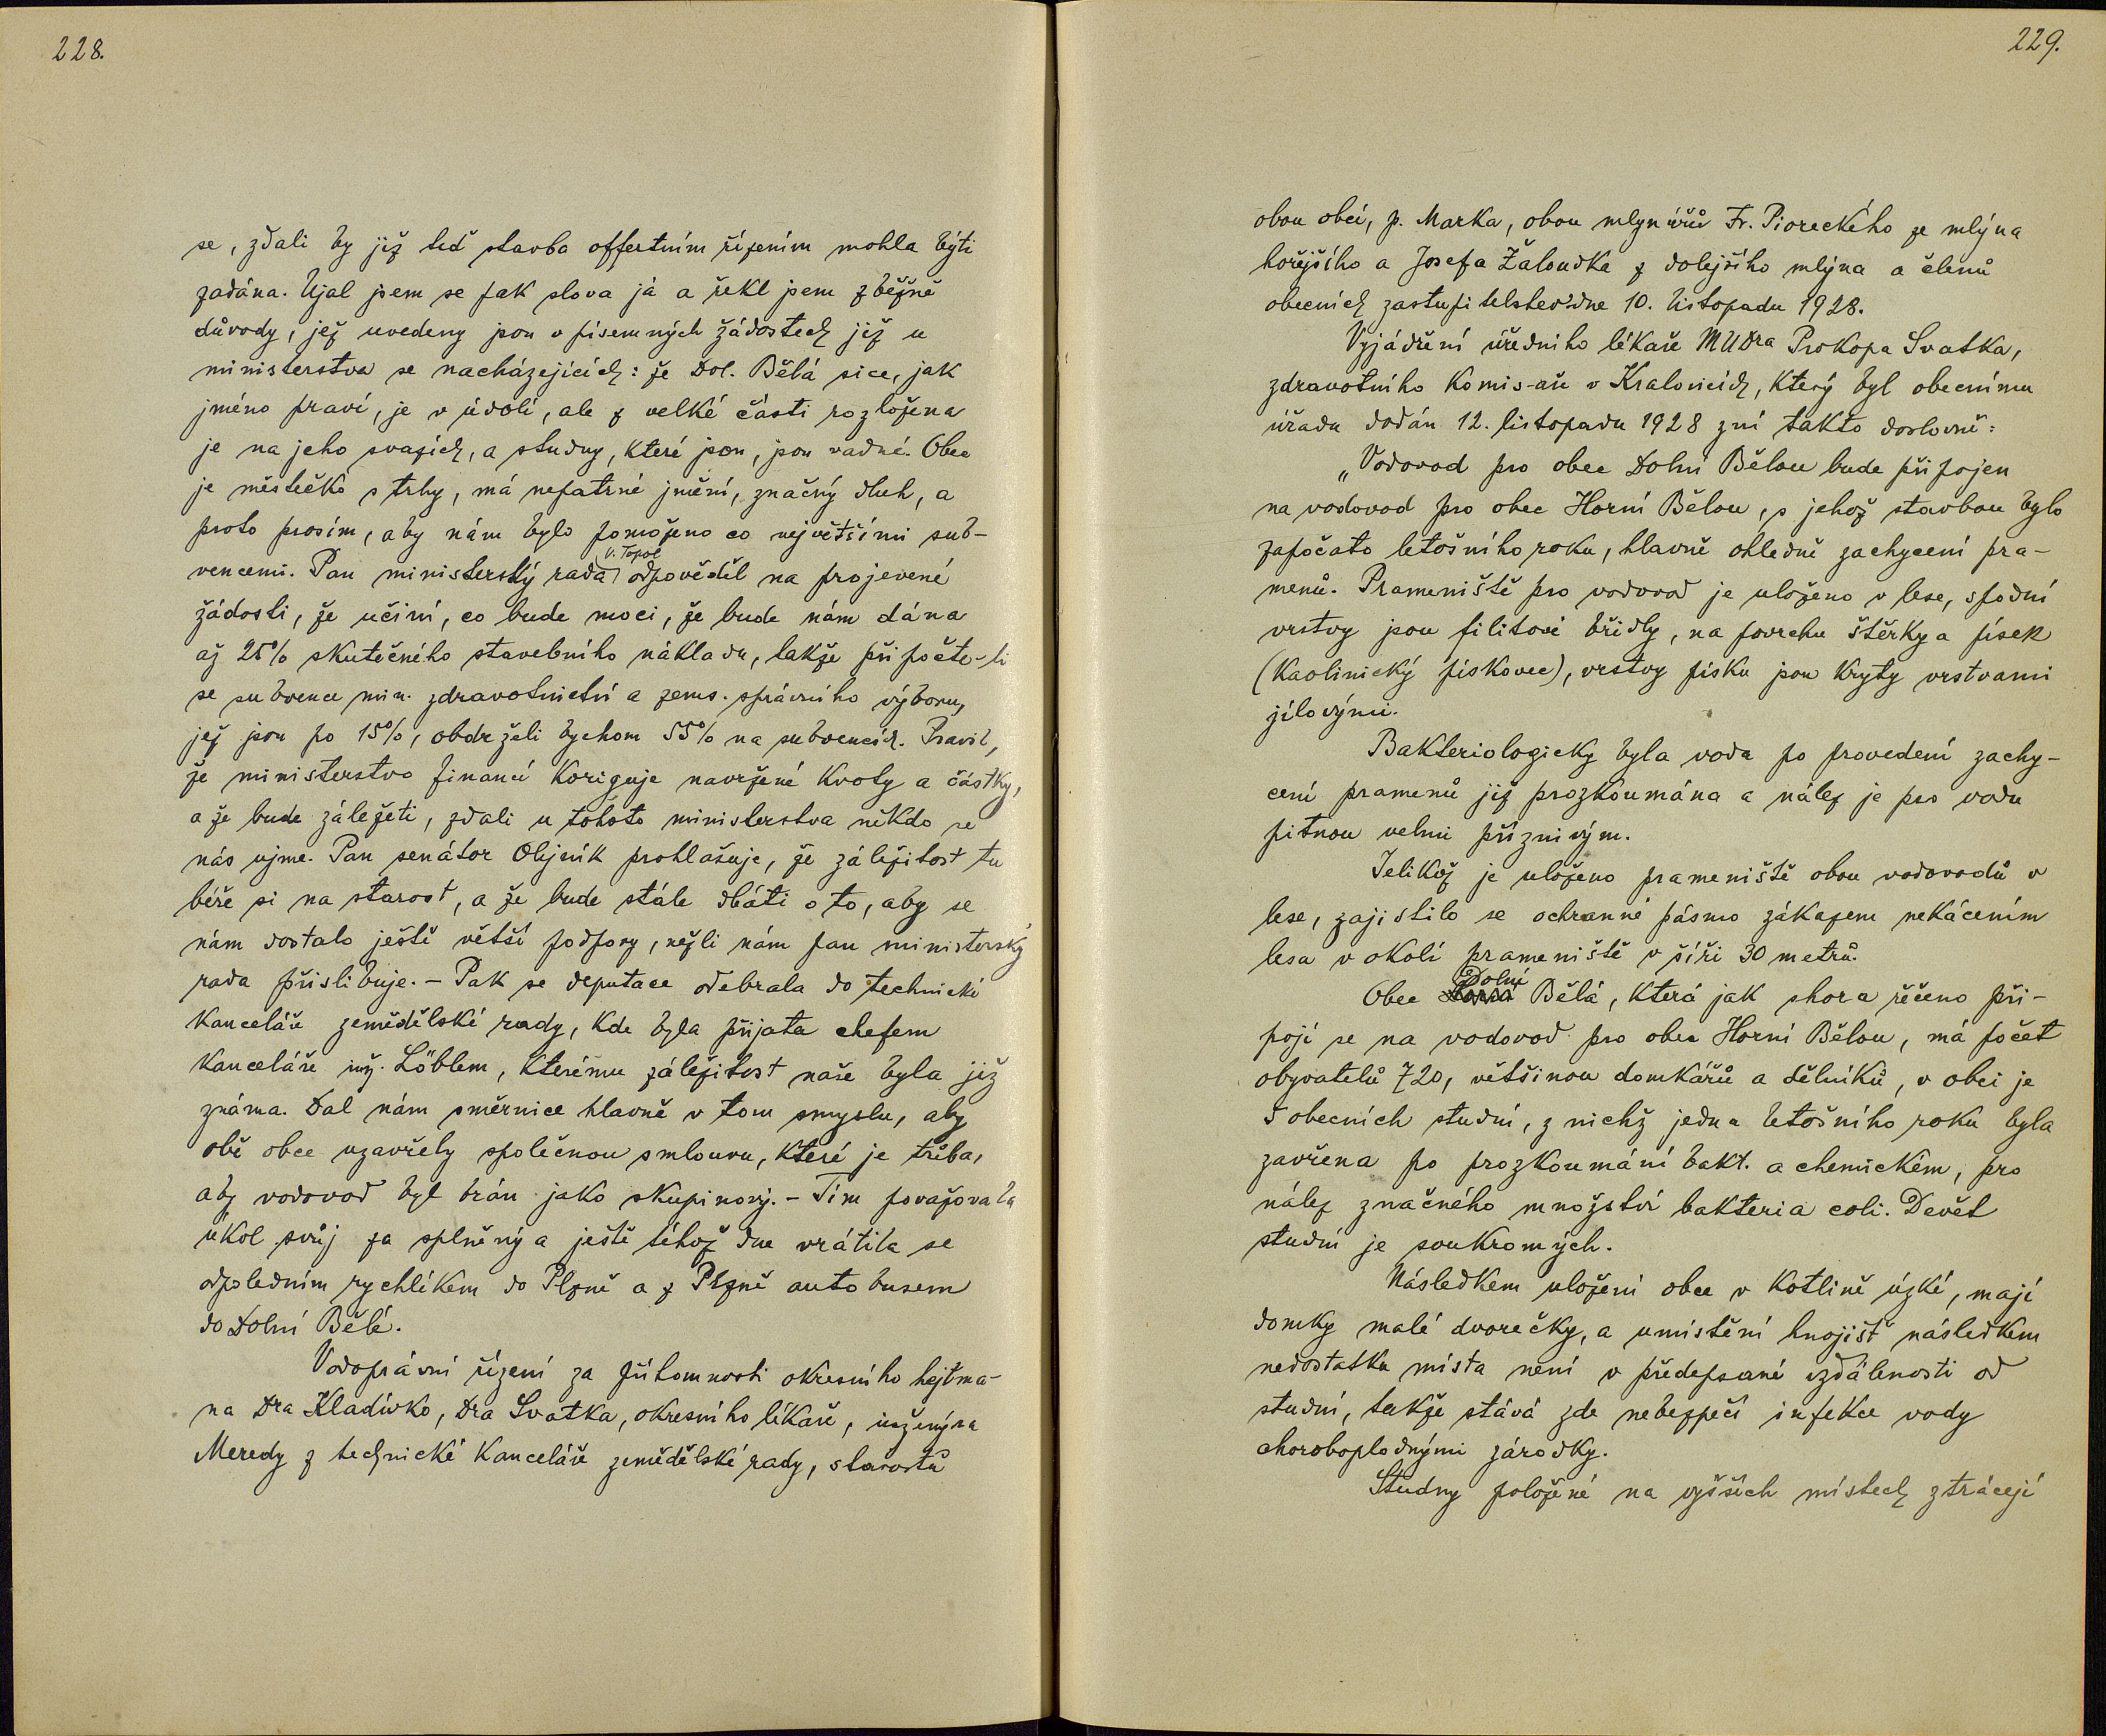 228.
se, zdali by již teď stavba offertním řízením mohla býti
zadána. Ujal jsem se pak slova já a řekl jsem zběžně
důvody, jež uvedeny jsou v písemných žádostech již u
ministerstva se nacházejících: že Dol. Bělá sice, jak
jméno praví, je v údolí, ale z velké části rozložena
je na jeho svazích, a studny, které jsou, jsou vadné. Obec
je městečko s trhy, má nepatrné jmění, značný dluh, a
proto prosím, aby nám bylo pomoženo co největšími sub-
V. Topol
vencemi. Pan ministerský rada odpověděl na projevené
žádosti, že učiní, co bude moci, že bude nám dána
až 25% skutečného stavebního nákladu, takže připočte-li
se subvence min. zdravotnictví a zems. správního výboru,
jež jsou po 15%, obdrželi bychom 55% na subvencích. Pravil,
že ministerstvo financí koriguje navržené kvoty a částky,
a že bude záležeti, zdali u tohoto ministerstva někdo se
nás ujme. Pan senátor Olejník prohlašuje, že záležitost tu
béře si na starost, a že bude stále dbáti o to, aby se
nám dostalo ještě větší podpory, nežli nám pan ministerský
rada přislibuje. – Pak se deputace odebrala do technické
kanceláře zemědělské rady, kde byla přijata chefem
kanceláře inž. Löblem, kterému záležitost naše byla již
známa. Dal nám směrnice hlavně v tom smyslu, aby
obě obce uzavřely společnou smlouvu, které je třeba,
aby vodovod byl brán jako skupinový. – Tím považovala
úkol svůj za splněný a ještě téhož dne vrátila se
odpoledním rychlíkem do Plzně a z Plzně autobusem
do Dolní Bělé.
Vodoprávní řízení za přítomnosti okresního hejtma-
na Dra Kladívko, Dra Svatka, okresního lékaře, inženýra
Meredy z technické kanceláře zemědělské rady, starostů
229.
obou obcí, p. Marka, obou mlynářů Fr. Pioreckého ze mlýna
hořejšího a Josefa Žaloudka z dolejšího mlýna a členů
obecních zastupitelstev dne 10. listopadu 1928.
Vyjádření úředního lékaře MUDra Prokopa Svatka,
zdravotního komis-aře v Kralovicích, který byl obecnímu
úřadu dodán 12. listopadu 1928 zní takto doslovně:
„Vodovod pro obec Dolní Bělou bude připojen
na vodovod pro obec Horní Bělou, s jehož stavbou bylo
započato letošního roku, hlavně ohledně zachycení pra-
menů. Prameniště pro vodovod je uloženo v lese, spodní
vrstvy jsou filitové břidly, na povrchu štěrky a písek
(kaolinický pískovec), vrstvy písku jsou kryty vrstvami
jílovými.
Bakteriologicky byla voda po provedení zachy-
cení pramenů již prozkoumána a nález je pro vodu
pitnou velmi příznivým.
Jelikož je uloženo prameniště obou vodovodů v
lese, zajistilo se ochranné pásmo zákazem nekácením
lesa v okolí prameniště v šíři 30 metrů.
Dolní
Obec Bělá, která jak shora řečeno při-
pojí se na vodovod pro obec Horní Bělou, má počet
obyvatelů 720, většinou domkářů a dělníků, v obci je
5 obecních studní, z nichž jedna letošního roku byla
zavřena po prozkoumání bakt. a chemickém, pro
nález značného množství bakteria coli. Devět
studní je soukromých.
Následkem uložení obce v kotlině úzké, mají
domky malé dvorečky, a umístění hnojišť následkem
nedostatku místa není v předepsané vzdálenosti od
studní, takže stává zde nebezpečí infekce vody
choroboplodnými zárodky.
Studny položené na vyšších místech ztrácejí